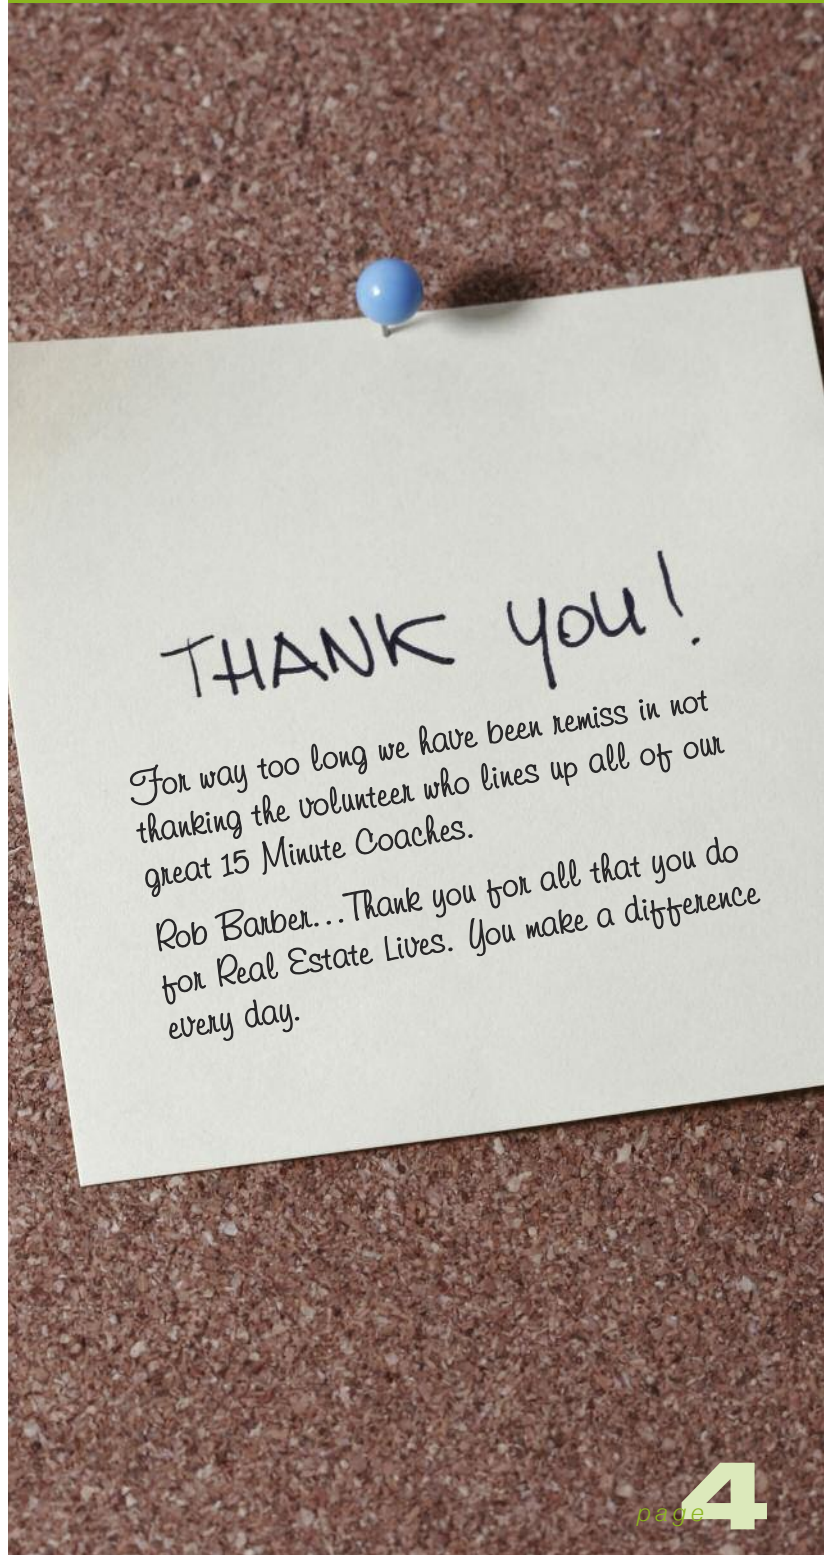 THANK YOU!
For way too long we have been remiss in not
thanking the volunteer who lines up all of our
great 15 Minute Coaches.
Rob Barber...Thank you for all that you do
for Real Estate Lives. You make a difference
every day.
page 4